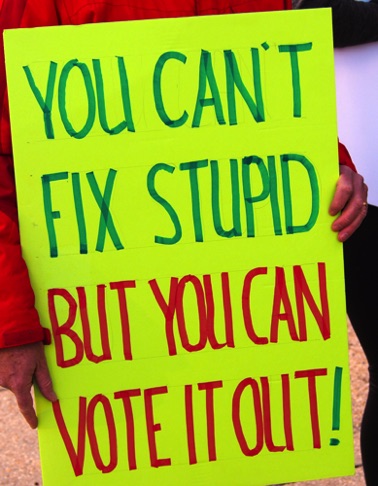 YOU CAN'T
FIX STUPID
BUT YOU CAN
VOTE IT OUT!